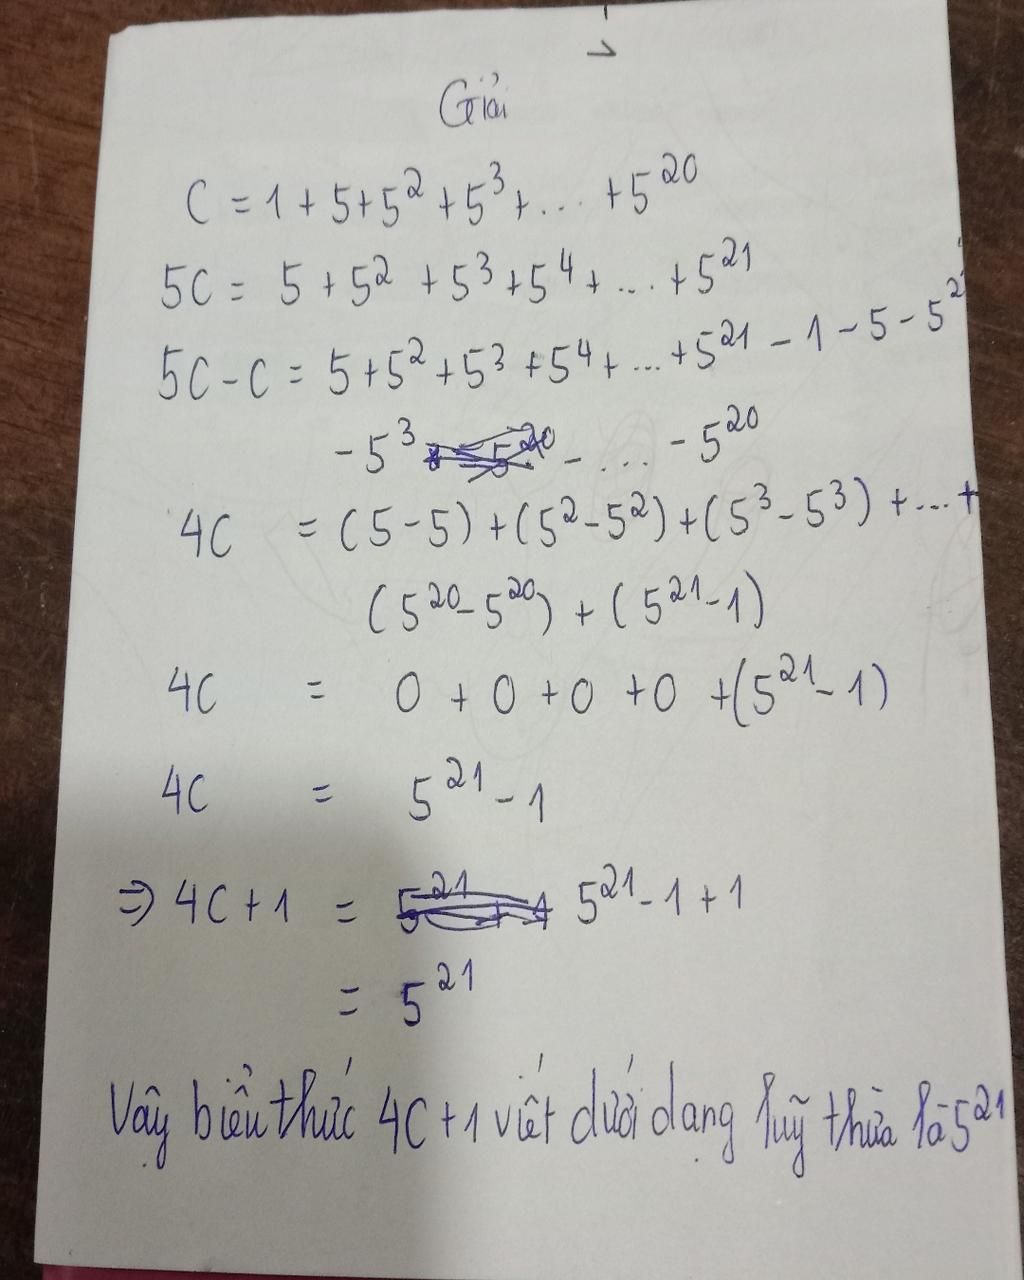 Giải
C = 1 + 5 + 5² + 5³ + ... + 5²⁰
5C = 5 + 5² + 5³ + 5⁴ + ... + 5²¹
5C - C = 5 + 5² + 5³ + 5⁴ + ... + 5²¹ - 1 - 5 - 5²
- 5³ - ... - 5²⁰
4C = (5 - 5) + (5² - 5²) + (5³ - 5³) + ... +
(5²⁰ - 5²⁰) + (5²¹ - 1)
4C = 0 + 0 + 0 + 0 + (5²¹ - 1)
4C = 5²¹ - 1
⇒ 4C + 1 = 5²¹ - 1 + 1
= 5²¹
Vậy biểu thức 4C + 1 viết dưới dạng luỹ thừa là 5²¹